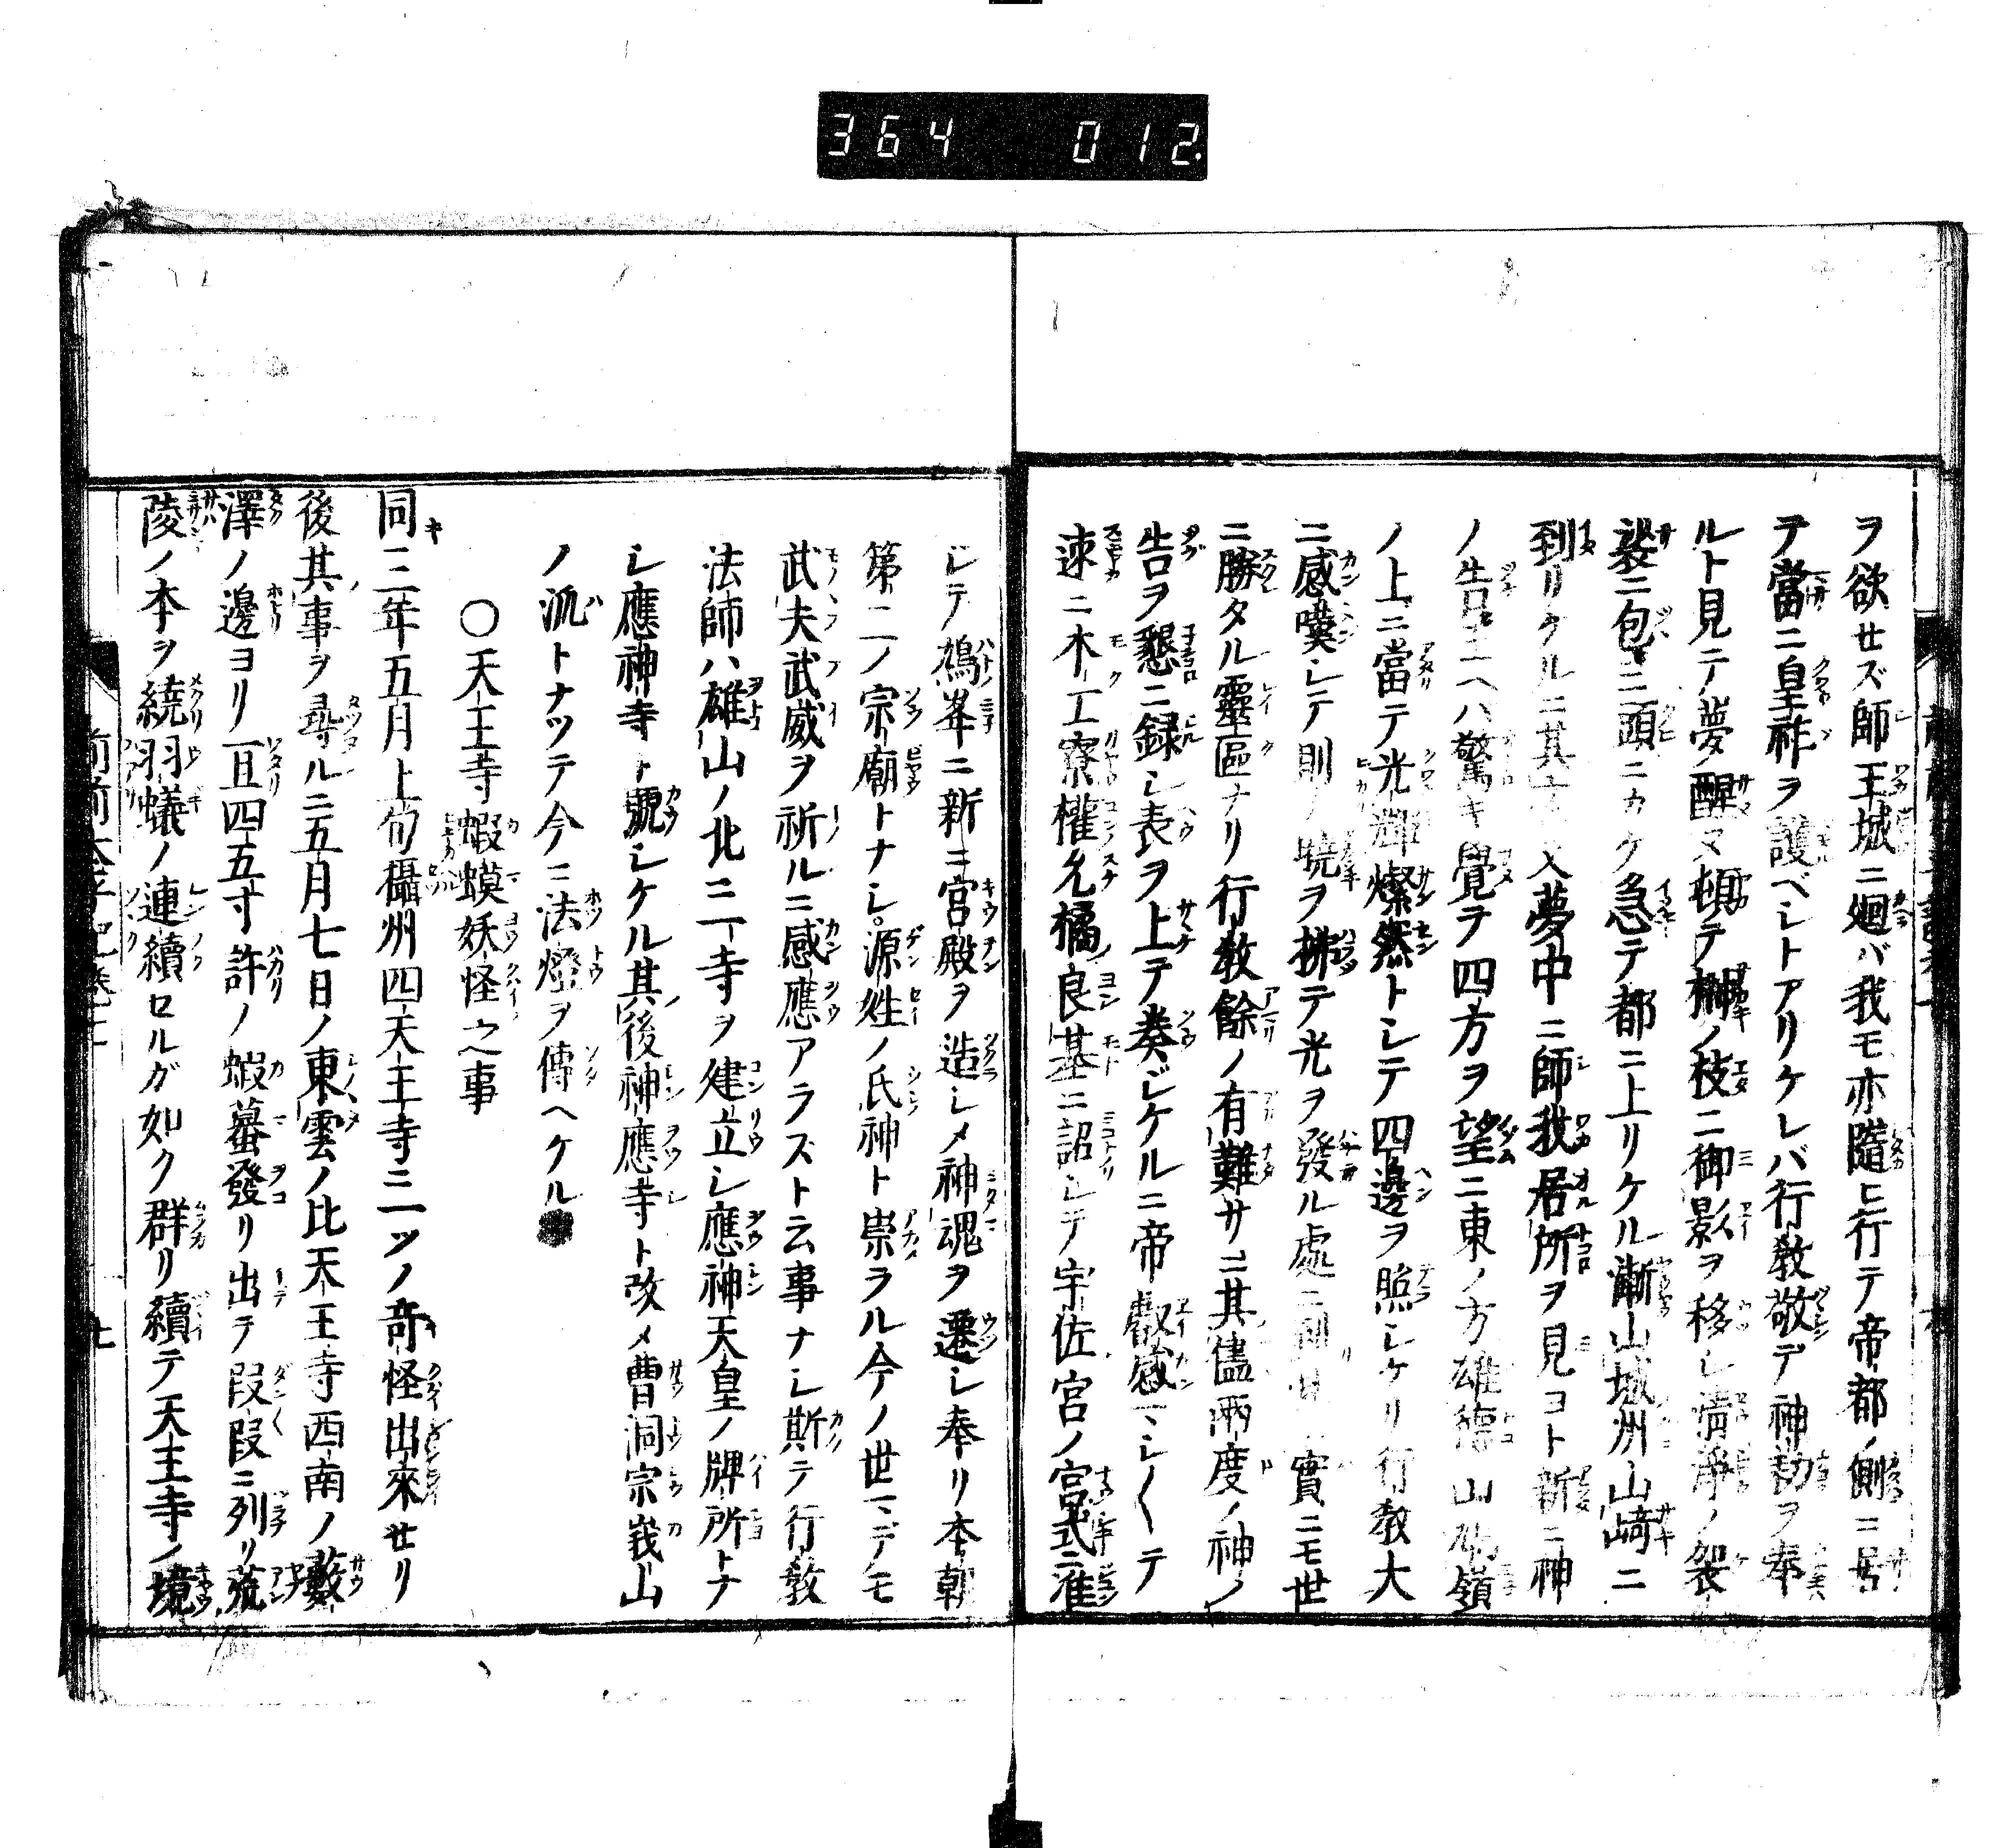 364 012
ヲ欲せズ師王城ニ廻バ我モ亦隨ヒ行テ帝都ノ側ニ居
テ當ニ皇祚ヲ護ベシトアリケレバ行敎敬デ神勅ヲ奉
ルト見テ夢醒ヌ頓テ榊ノ枝ニ御影ヲ移シ清淨ノ袈
裟ニ包ミ頭ニカケ急テ都ニ上リケル漸山城州山﨑ニ
到リケルニ其夜又夢中ニ師我居所ヲ見コト新ニ神
ノ告ニハ驚キ覺ヲ四方ヲ望ニ東ノ方雄德山鳩嶺
ノ上ニ當テ光輝燦然トシテ四邊ヲ照シケリ行敎大
ニ感嘆シテ則ノ曉ヲ拂テ光ヲ發ル處ニ到 實ニモ世
ニ勝タル靈區ナリ行敎餘ノ有難サニ其儘兩度ノ神ノ
告ヲ懇ニ録シ表ヲ上テ奏シケルニ帝叡感マシ〱テ
速ニ木工寮權允橘良基ニ詔シテ宇佐宮ノ宮式ニ准
シテ鳩峯ニ新ニ宮殿ヲ造シメ神魂ヲ遷シ奉リ本朝
第二ノ宗廟トナシ源姓ノ氏神ト崇ラル今ノ世マデモ
武夫武威ヲ祈ルニ感應アラズト云事ナシ斯テ行敎
法師ハ雄山ノ北ニ一寺ヲ建立シ應神天皇ノ牌所トナ
シ應神寺ト號シケル其後神應寺ト改メ曹洞宗峩山
ノ派トナツテ今ニ法燈ヲ傳ヘケル
〇天王寺蝦蟆妖怪之事
同三年五月上旬攝州四天王寺ニ一ツノ奇怪出來せリ
後其事ヲ尋ルニ五月七日ノ東雲ノ比天王寺西南ノ藪
澤ノ邊ヨリ一亘四五寸許ノ蝦蟇發リ出テ段段ニ列リ荒
陵ノ本ヲ繞羽蟻ノ連續セルガ如ク群リ續テ天王寺ノ境
前前太平記卷二
七